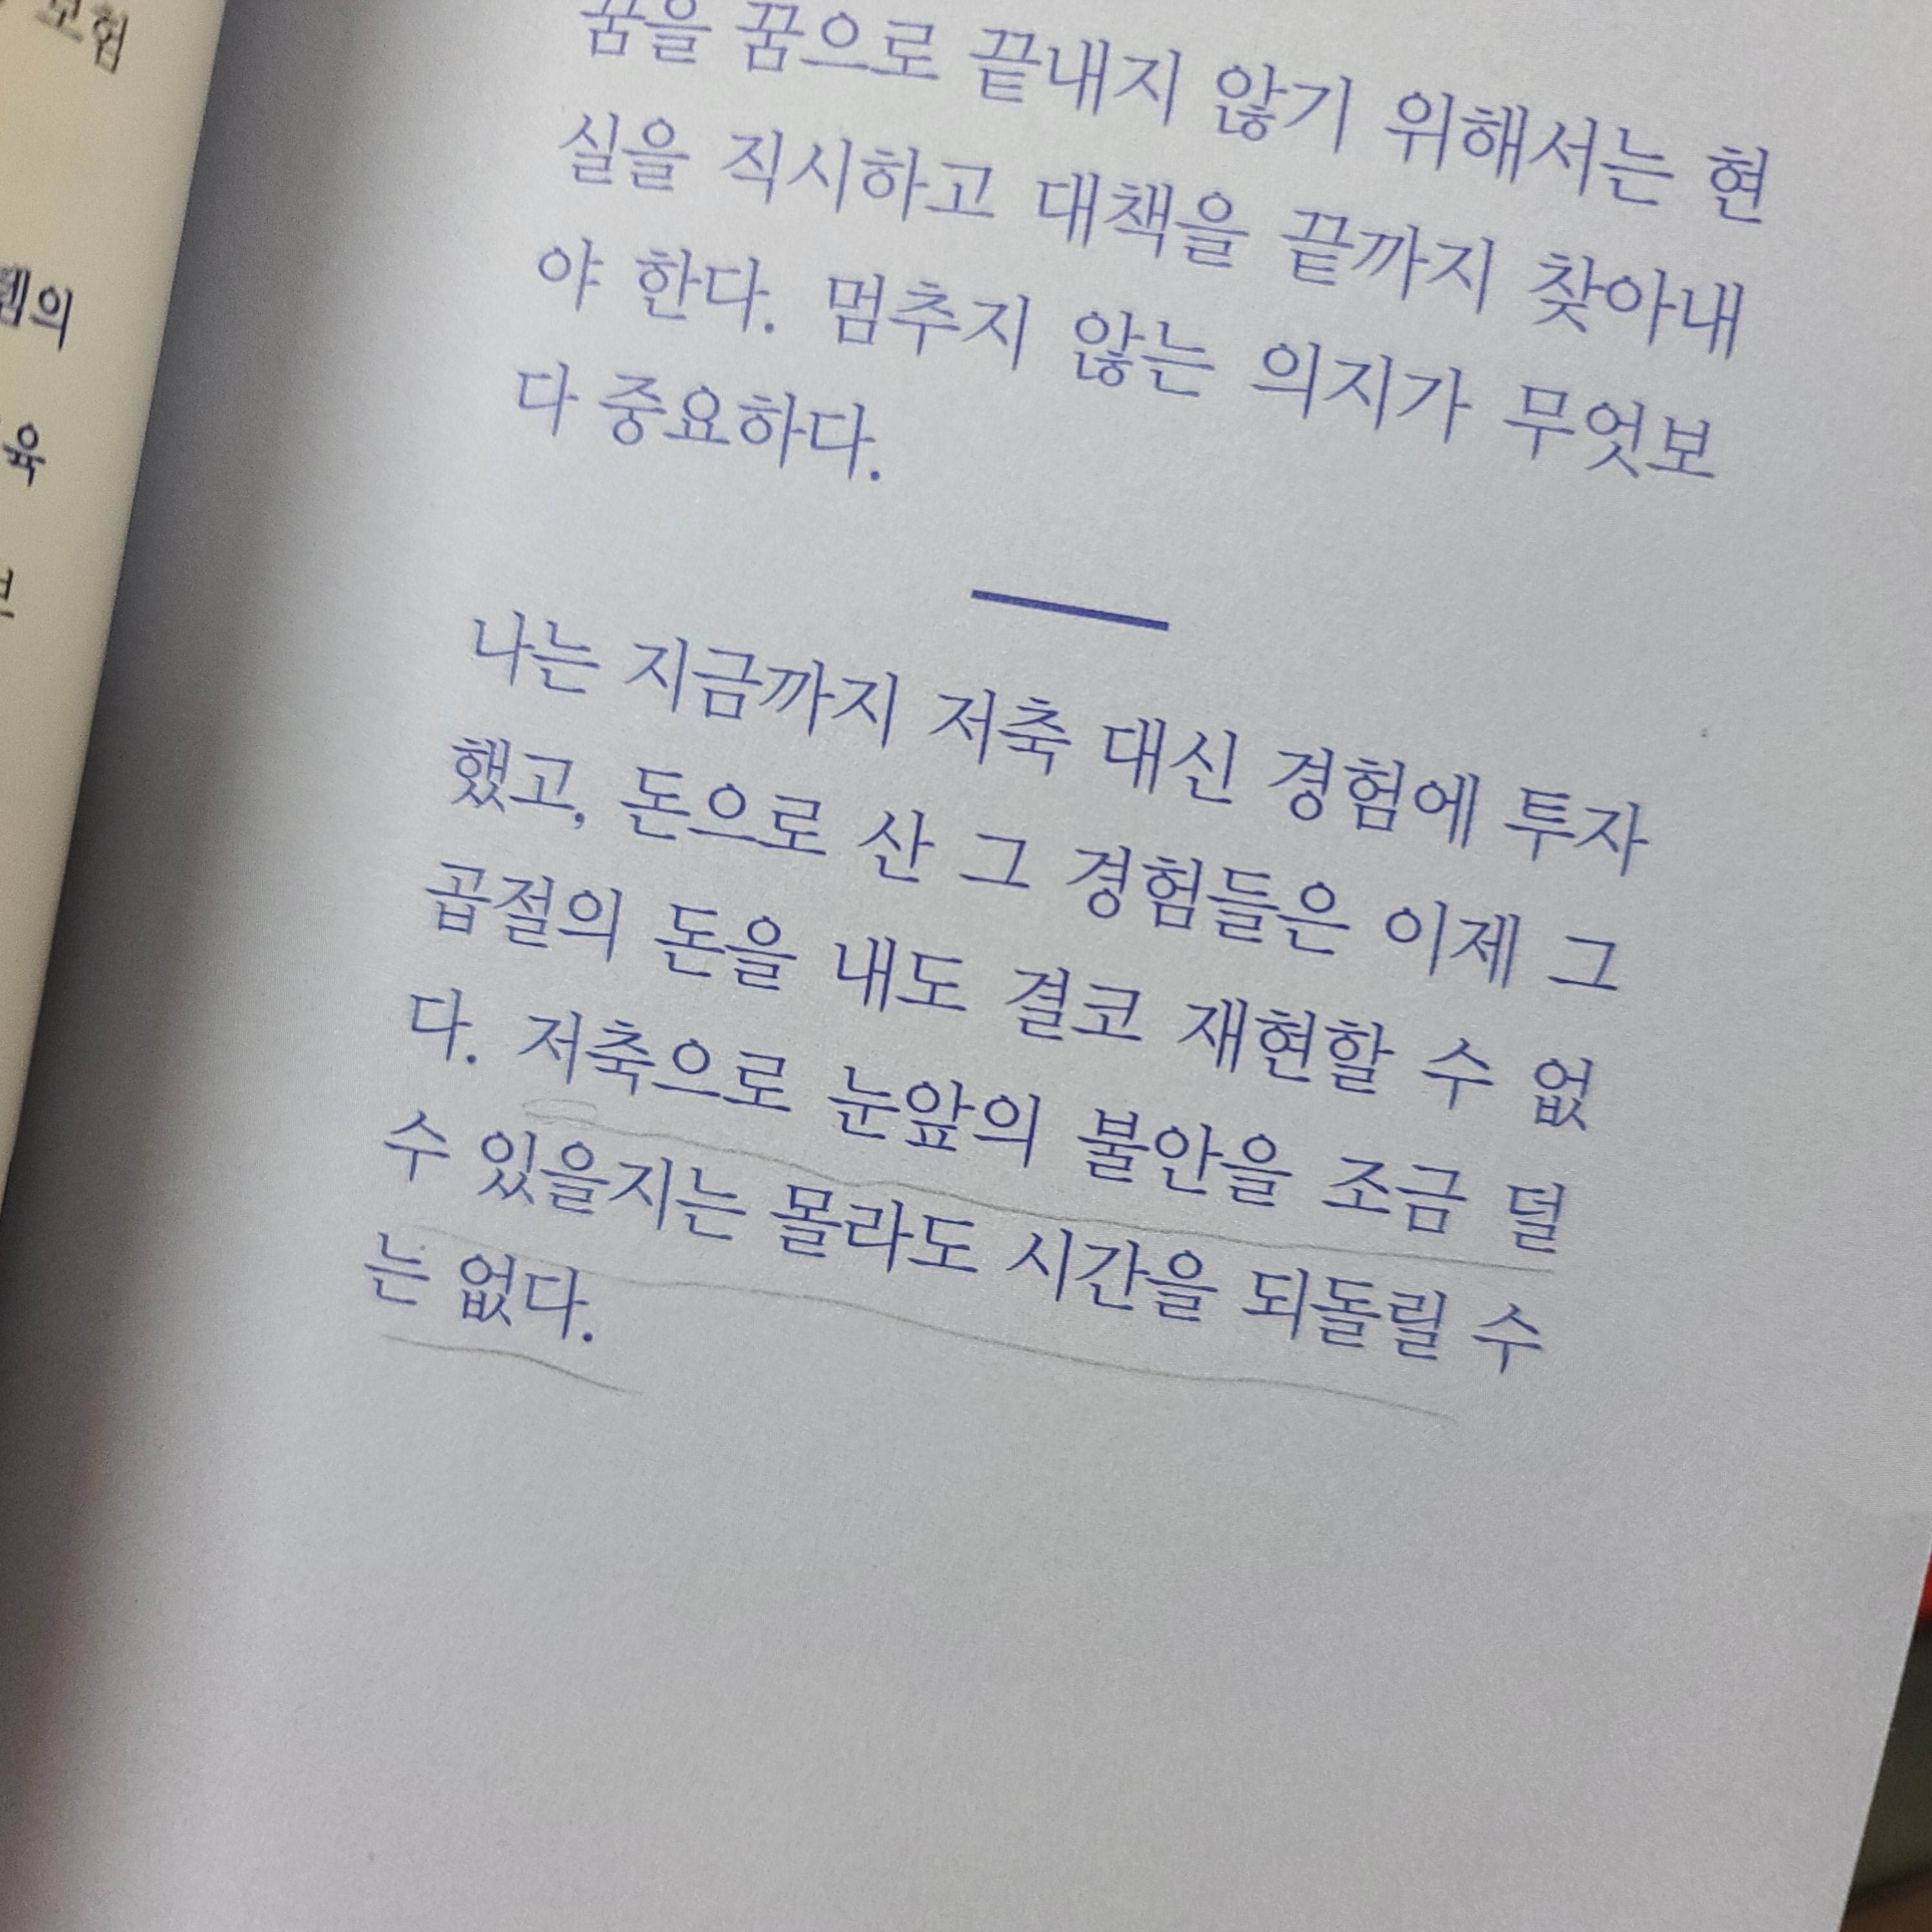 보험
의
육
꿈을 꿈으로 끝내지 않기 위해서는 현
실을 직시하고 대책을 끝까지 찾아내
야 한다. 멈추지 않는 의지가 무엇보
다 중요하다.
나는 지금까지 저축 대신 경험에 투자
했고, 돈으로 산 그 경험들은 이제 그
곱절의 돈을 내도 결코 재현할 수 없
다. 저축으로 눈앞의 불안을 조금 덜
수 있을지는 몰라도 시간을 되돌릴 수
는 없다.